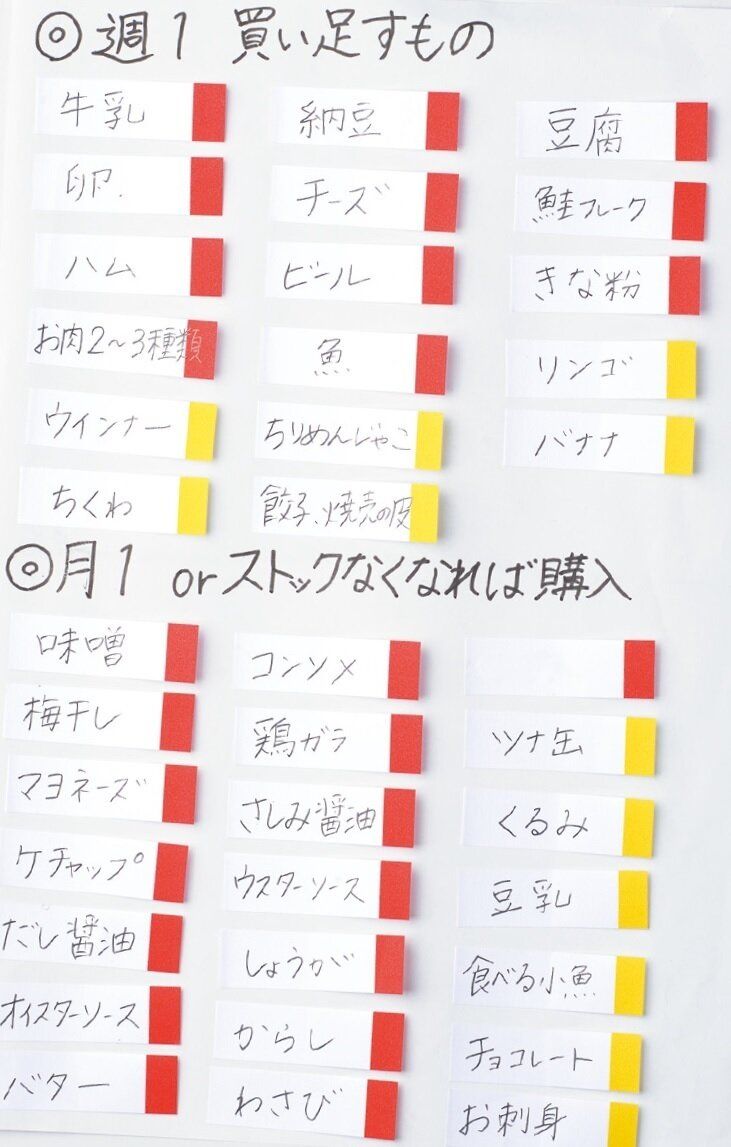 ◎週1 買い足すもの
牛乳 納豆 豆腐
卵. チーズ 鮭フレーク
ハム ビール きな粉
お肉2〜3種類 魚 リンゴ
ウインナー ちりめんじゃこ バナナ
ちくわ 餃子、焼売の皮
◎月1 orストックなくなれば購入
味噌 コンソメ
梅干し 鶏ガラ ツナ缶
マヨネーズ さしみ醤油 くるみ
ケチャップ ウスターソース 豆乳
だし醤油 しょうが 食べる小魚
オイスターソース からし チョコレート
バター わさび お刺身